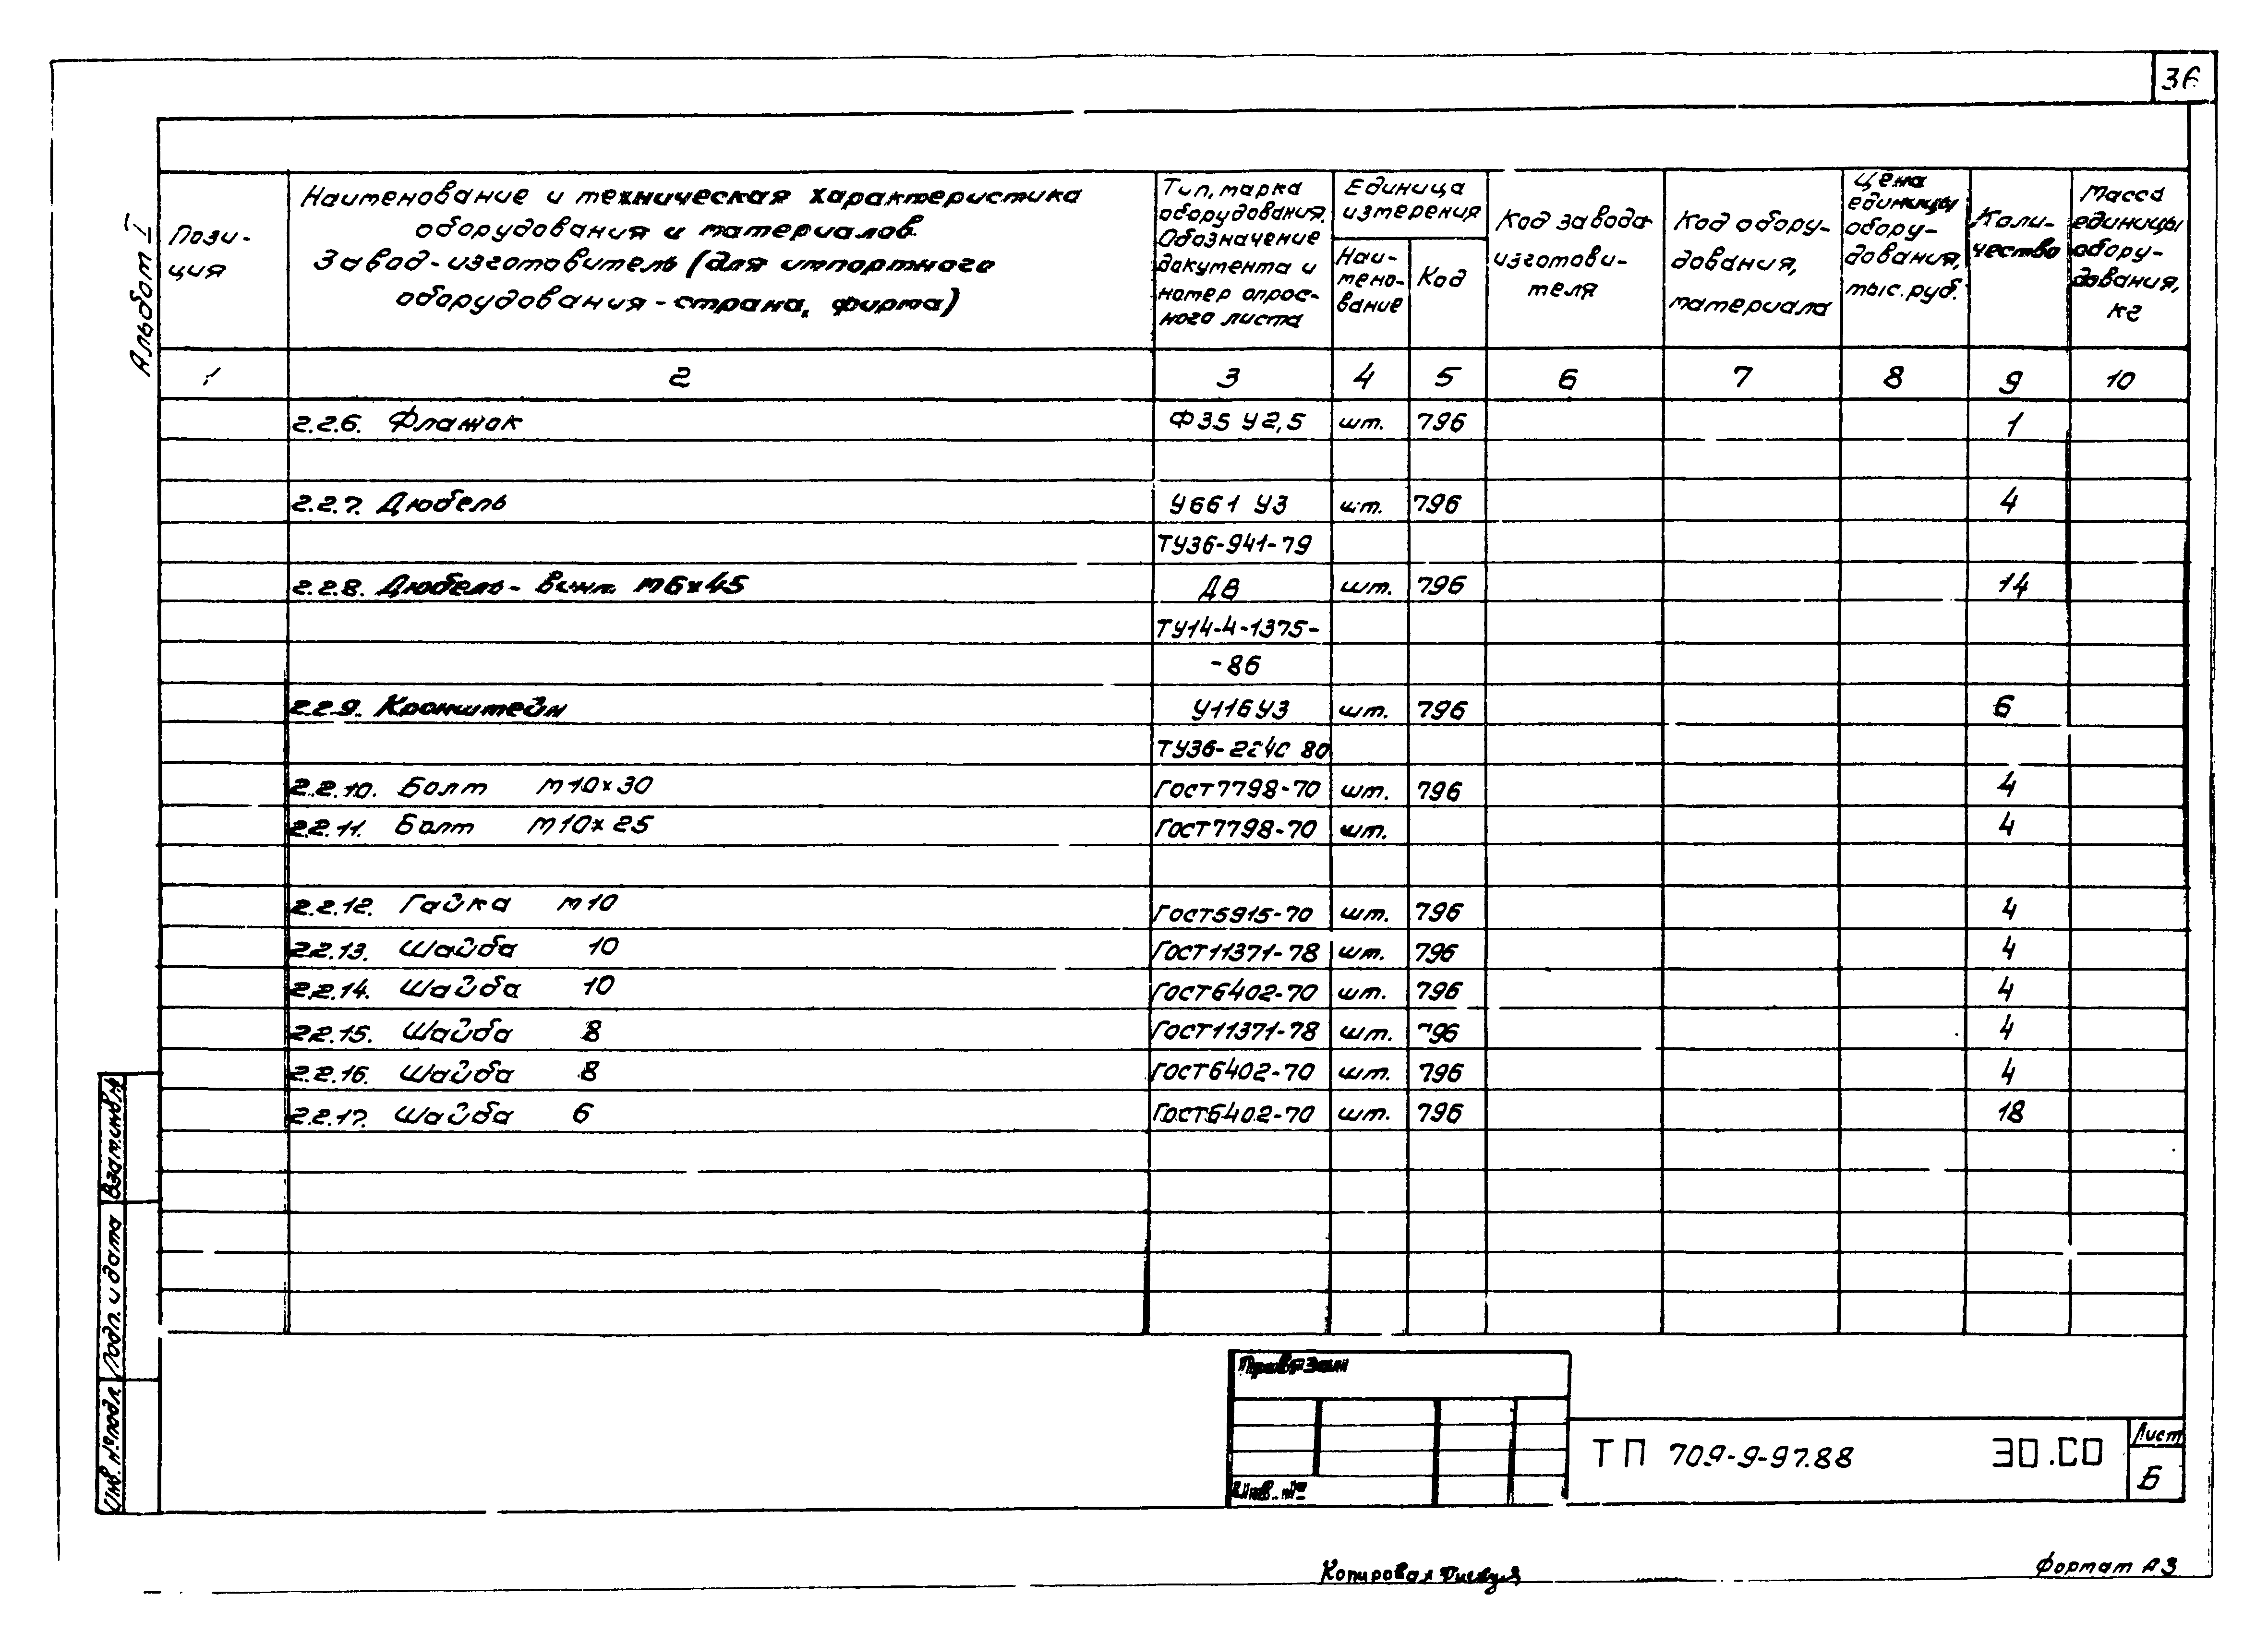 36
Альбом I
Пози-
ция
Наименование и техническая характеристика
оборудования и материалов.
Завод-изготовитель (для импортного
оборудования - страна, фирма)
Тип, марка
оборудования.
Обозначение
документа и
номер опрос-
ного листа
Единица
измерения
Наи-
мено-
вание
Код
Код завода
изготови-
теля
Код обору-
дования,
материала
Цена
единицы
обору-
дования,
тыс. руб.
Коли-
чество
Масса
единицы
обору-
дования,
кг
1 2 3 4 5 6 7 8 9 10
2.2.6. Флажок Ф35 У2,5 шт. 796 1
2.2.7. Дюбель У661 У3 шт. 796 4
ТУ36-941-79
2.2.8. Дюбель-винт М6×45 ДВ шт. 796 14
ТУ14-4-1375-
-86
2.2.9. Кронштейн У116У3 шт. 796 6
80
2.2.10. Болт М10×30 ГОСТ7798-70 шт. 796 4
2.2.11. Болт М10×25 ГОСТ7798-70 шт. 4
2.2.12. Гайка М10 ГОСТ5915-70 шт. 796 4
2.2.13. Шайба 10 ГОСТ11371-78 шт. 796 4
2.2.14. Шайба 10 ГОСТ6402-70 шт. 796 4
2.2.15. Шайба 8 ГОСТ11371-78 шт. 796 4
2.2.16. Шайба 8 ГОСТ6402-70 шт. 796 4
2.2.17. Шайба 6 ГОСТ6402-70 шт. 796 18
Взам.инв.№
Подп. и дата
Инв. № подл.
Привязан
Инв. №
ТП 709-9-97.88 ЭО.СО
Лист
6
Копировал
Формат А3